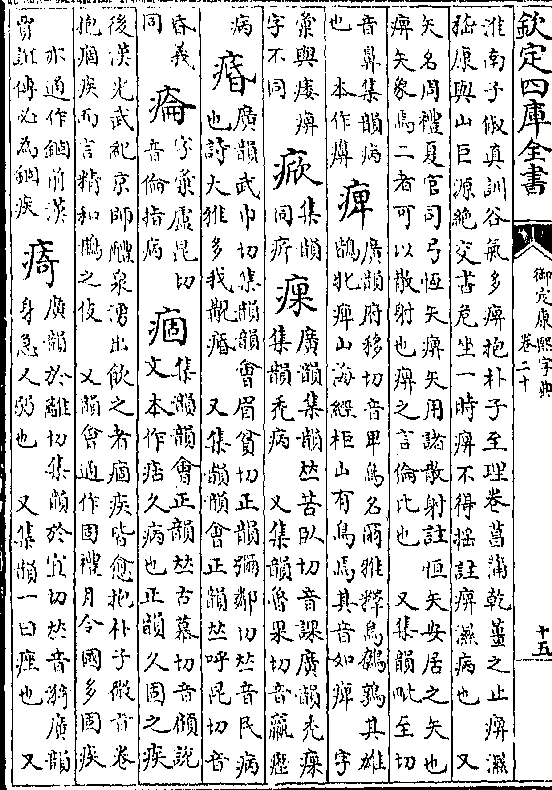 欽定四庫全書
御定康熙字典
卷二十
十五
淮南子俶真訓谷氣多痹抱朴子至理卷菖蒲乾薑之止痹濕
嵇康與山巨源絶交書危坐一時痹不得搖註痹濕病也 又
矢名周禮夏官司弓恆矢痹矢用諸散射註恒矢安居之矢也
痹矢象焉二者可以散射也痹之言倫比也 又集韻毗至切
音鼻集韻病
也 本作
痺
廣韻府移切音卑鳥名爾雅釋鳥鷯鶉其雄
鶛牝痺山海經柜山有鳥焉其音如痺 字
彚與痹
字不同
集韻
同疥
廣韻集韻𠀤苦臥切音課廣韻禿
集韻禿病 又集韻魯果切音蠃
病
痻
廣韻武巾切集韻韻會眉貧切正韻彌鄰切𠀤音民病
也詩大雅多我覯痻 又集韻韻會正韻𠀤呼昆切音
昏義
同
字彙盧昆切
音倫指病
痼
集韻韻會正韻𠀤古慕切音顧說
文本作久病也正韻久固之疾
後漢光武紀京師醴泉湧出飲之者痼疾皆愈抱朴子微旨卷
抱痼疾而言精和鵲之伎 又韻會通作固禮月令國多固疾
亦通作錮前漢
賈誼傳必為錮疾
㾨
廣韻於離切集韻於宜切𠀤音漪廣韻
身急人弱也 又集韻一曰痤也 又